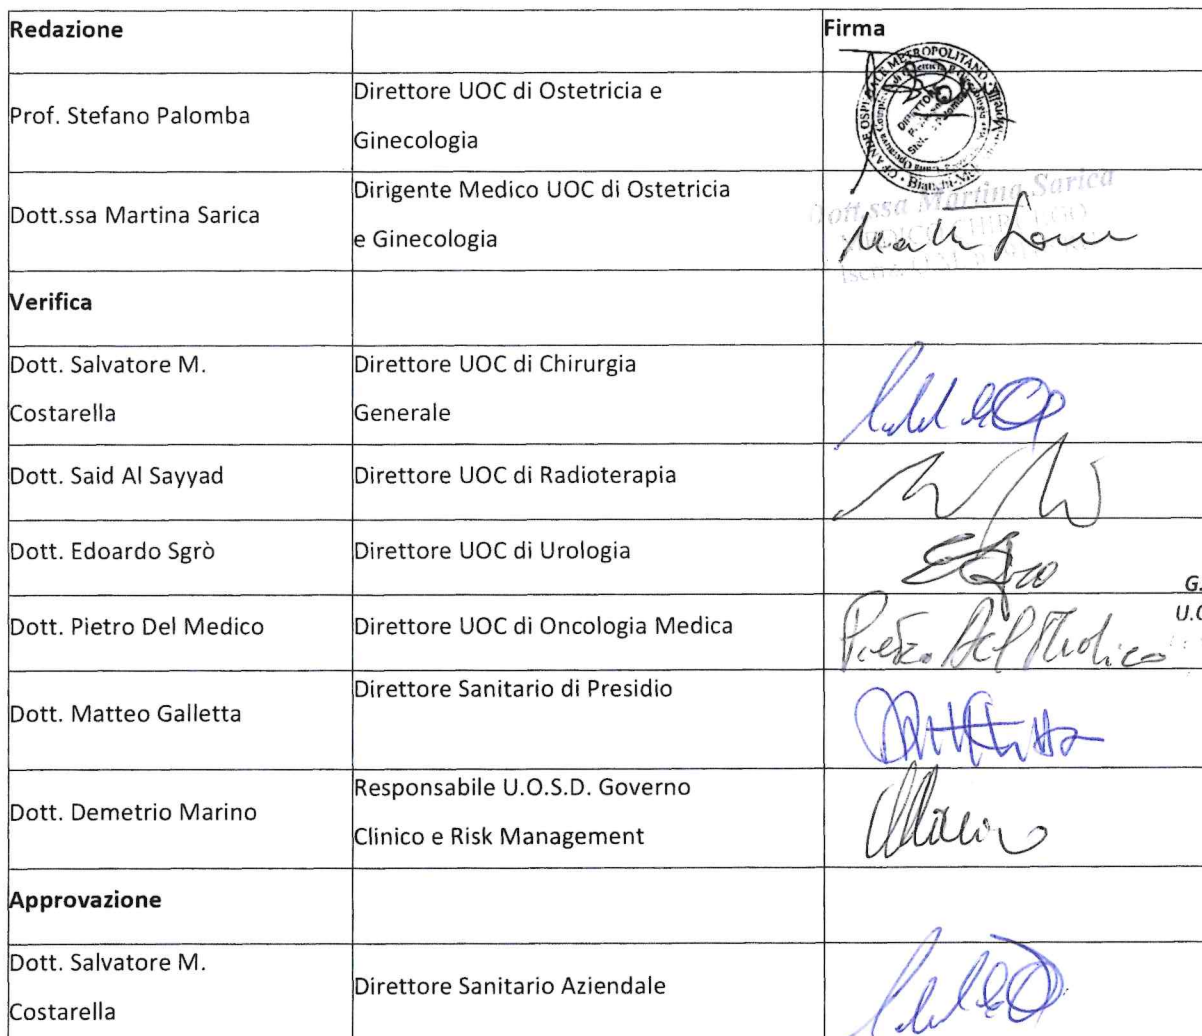 Redazione Firma
Prof. Stefano Palomba
Direttore UOC di Ostetricia e
Ginecologia
GRANDE OSPEDALE METROPOLITANO
Dott.ssa Martina Sarica
Dirigente Medico UOC di Ostetricia
e Ginecologia
Dott.ssa Martina Sarica
Verifica
Dott. Salvatore M.
Costarella
Direttore UOC di Chirurgia
Generale
Dott. Said Al Sayyad
Direttore UOC di Radioterapia
Dott. Edoardo Sgrò
Direttore UOC di Urologia
G.
Dott. Pietro Del Medico
Direttore UOC di Oncologia Medica
Pietro Del Medico
U.O
Dott. Matteo Galletta
Direttore Sanitario di Presidio
Dott. Demetrio Marino
Responsabile U.O.S.D. Governo
Clinico e Risk Management
Approvazione
Dott. Salvatore M.
Costarella
Direttore Sanitario Aziendale